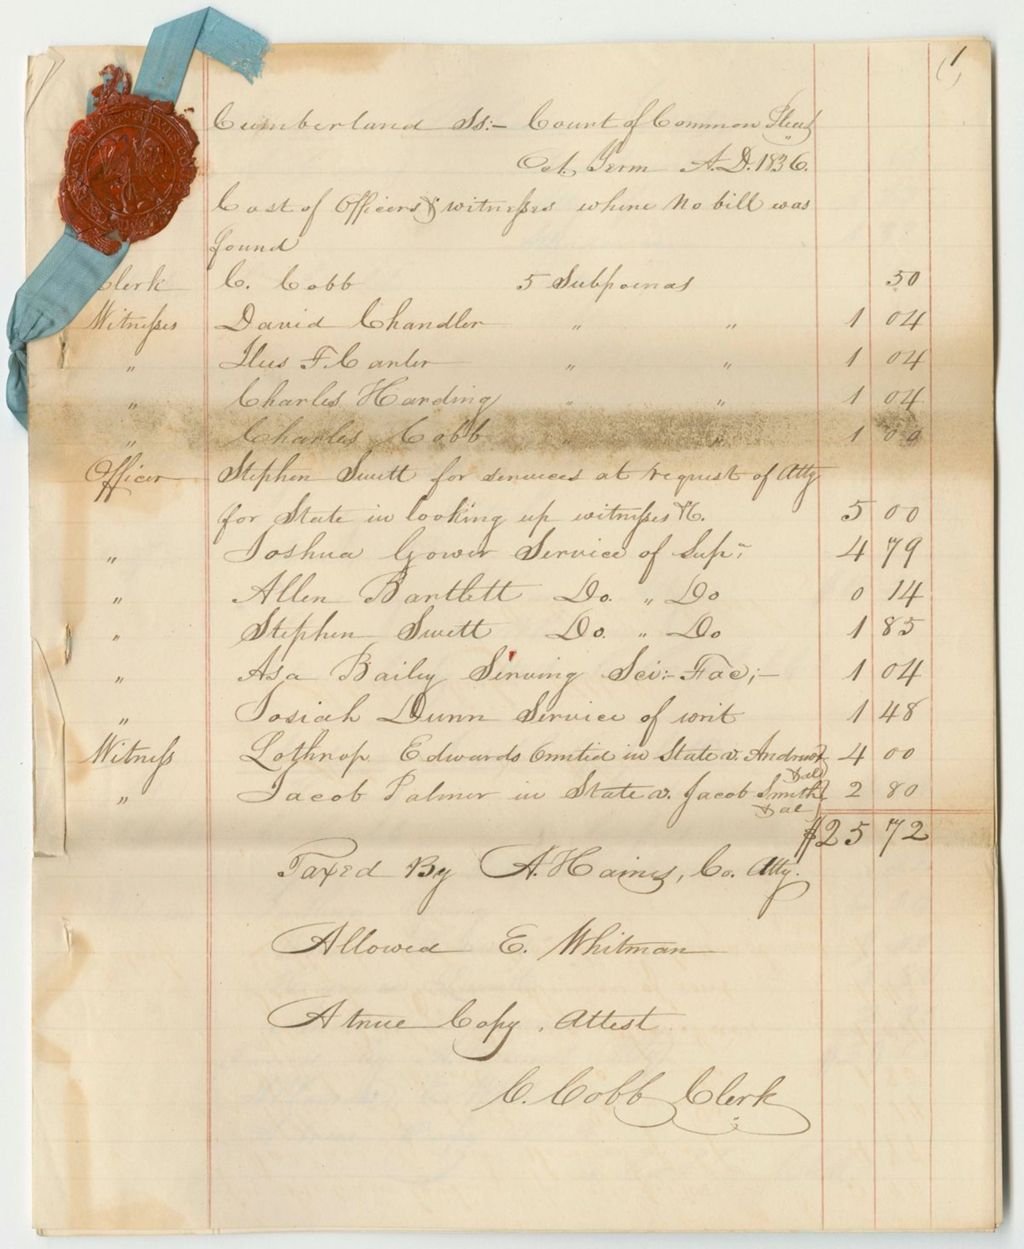 1
Cumberland Ss:- Court of Common Pleas
Oct. Term A.D. 1836.
Cost of Officers & witnesses where no bill was
found
Clerk C. Cobb 5 Subpoenas 50
Witnesses David Chandler " " 1 04
" F. Carter " " 1 04
" Charles Harding " " 1 04
" Charles Cobb " " 1 00
Officer Stephen Swett for services at request of Atty
for State in looking up witnesses &c. 5 00
" Joshua Gower Service of Sup: 4 79
" Allen Bartlett Do. " Do 0 14
" Stephen Swett Do. " Do 1 85
" Asa Bailey Serving Sci:- Fac;- 1 04
" Josiah Dunn Service of writ 1 48
Witness Lothrop Edwards Omitted in State v. Andrews 4 00
& al
" Jacob Palmer in State v. Jacob Smith 2 80
& al
$25 72
Taxed By A. Haines, Co. Atty.
Allowed E. Whitman
A true Copy, Attest
C. Cobb Clerk